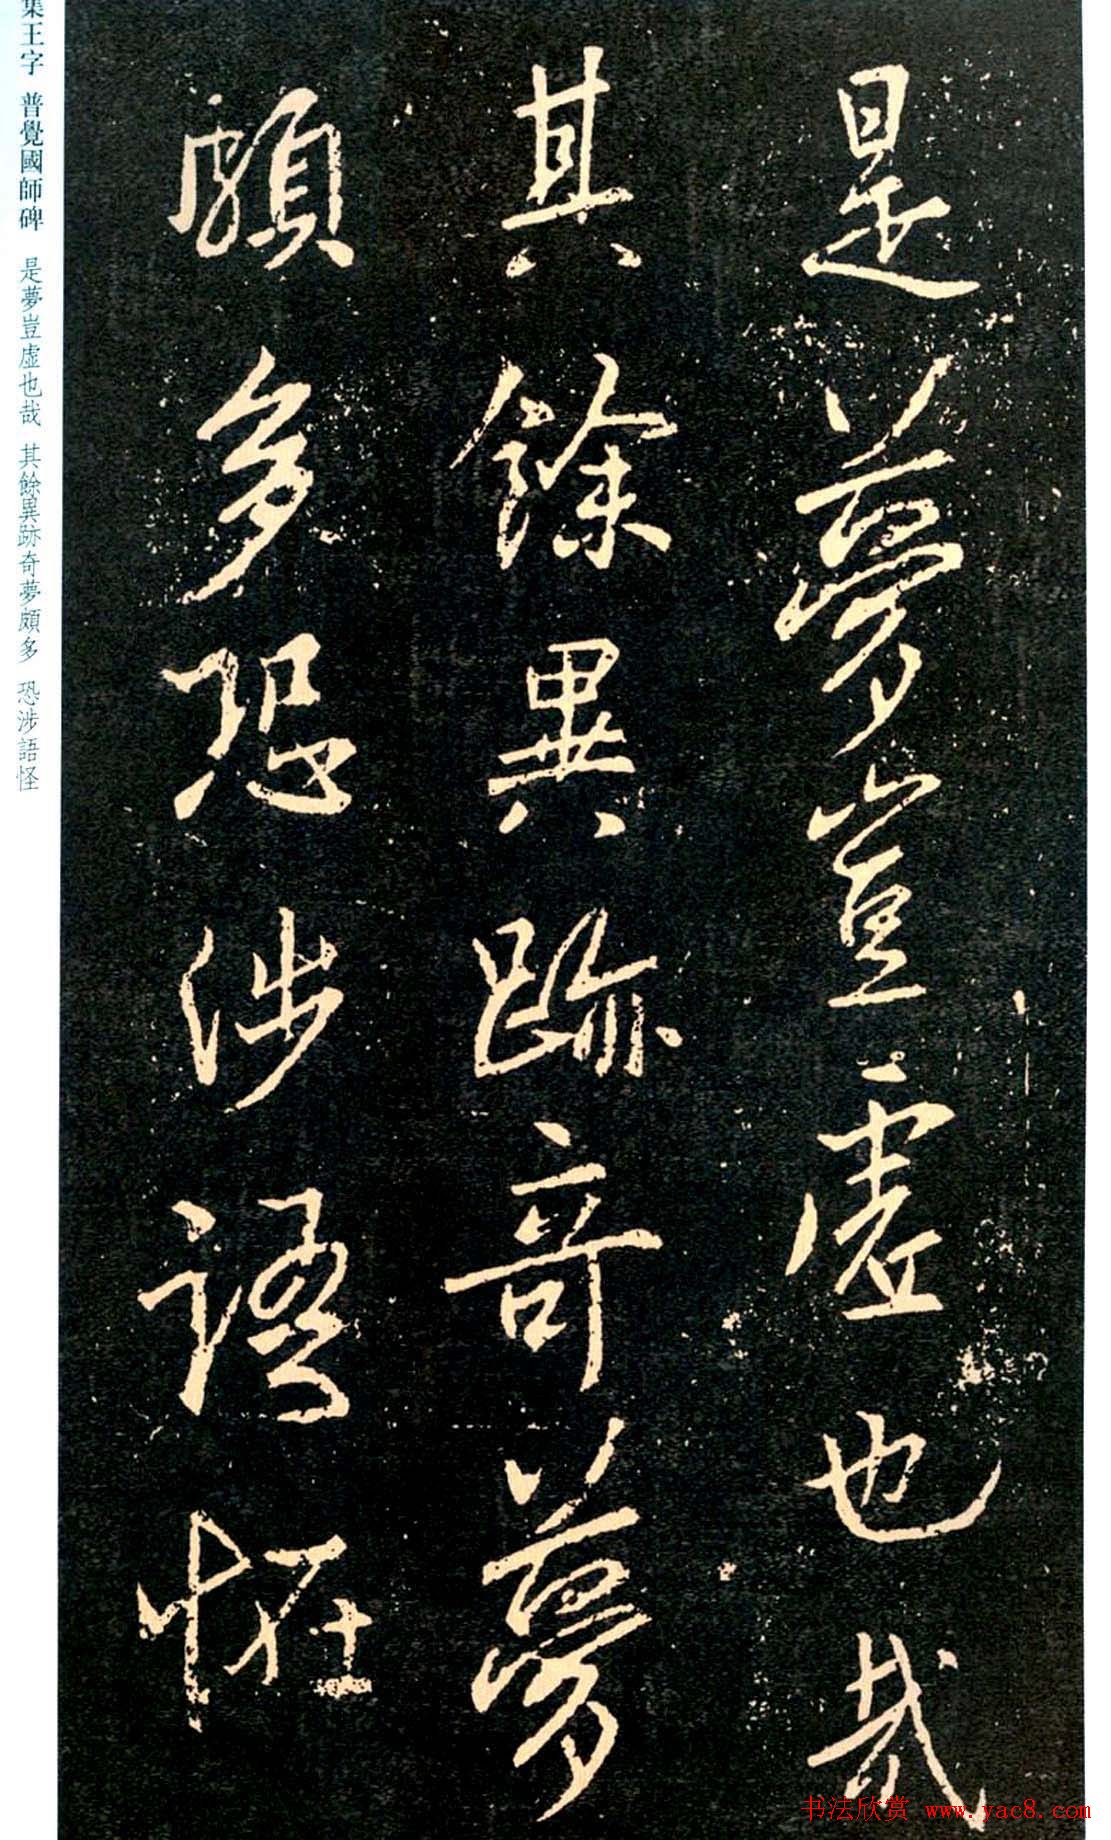 是夢豈虛也哉
其餘異跡奇夢
頗多恐涉語怪
集王字 普覺國師碑 是夢豈虛也哉 其餘異跡奇夢頗多 恐涉語怪
书法欣赏 www.yac8.com